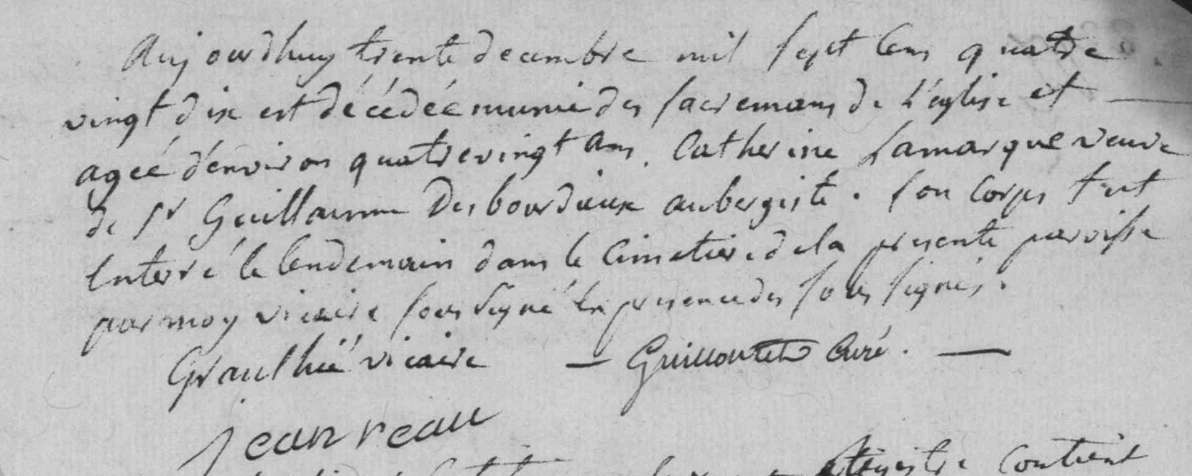 Aujourdhuy trente decembre mil sept cens quatre
vingt dix est décédée munie des sacremans de l'église et
ageé d'environ quatrevingt ans. Catherine Lamarque veuve
de Sr Guillaume Desbourdieux aubergiste. Son corps fut
Enterré le lendemain dans le Cimetiere de la presente paroisse
par moy vicaire sous signé en presence des sous signés.
Graulhié vicaire — Guillontet Curé. —
jean reau
registre contient